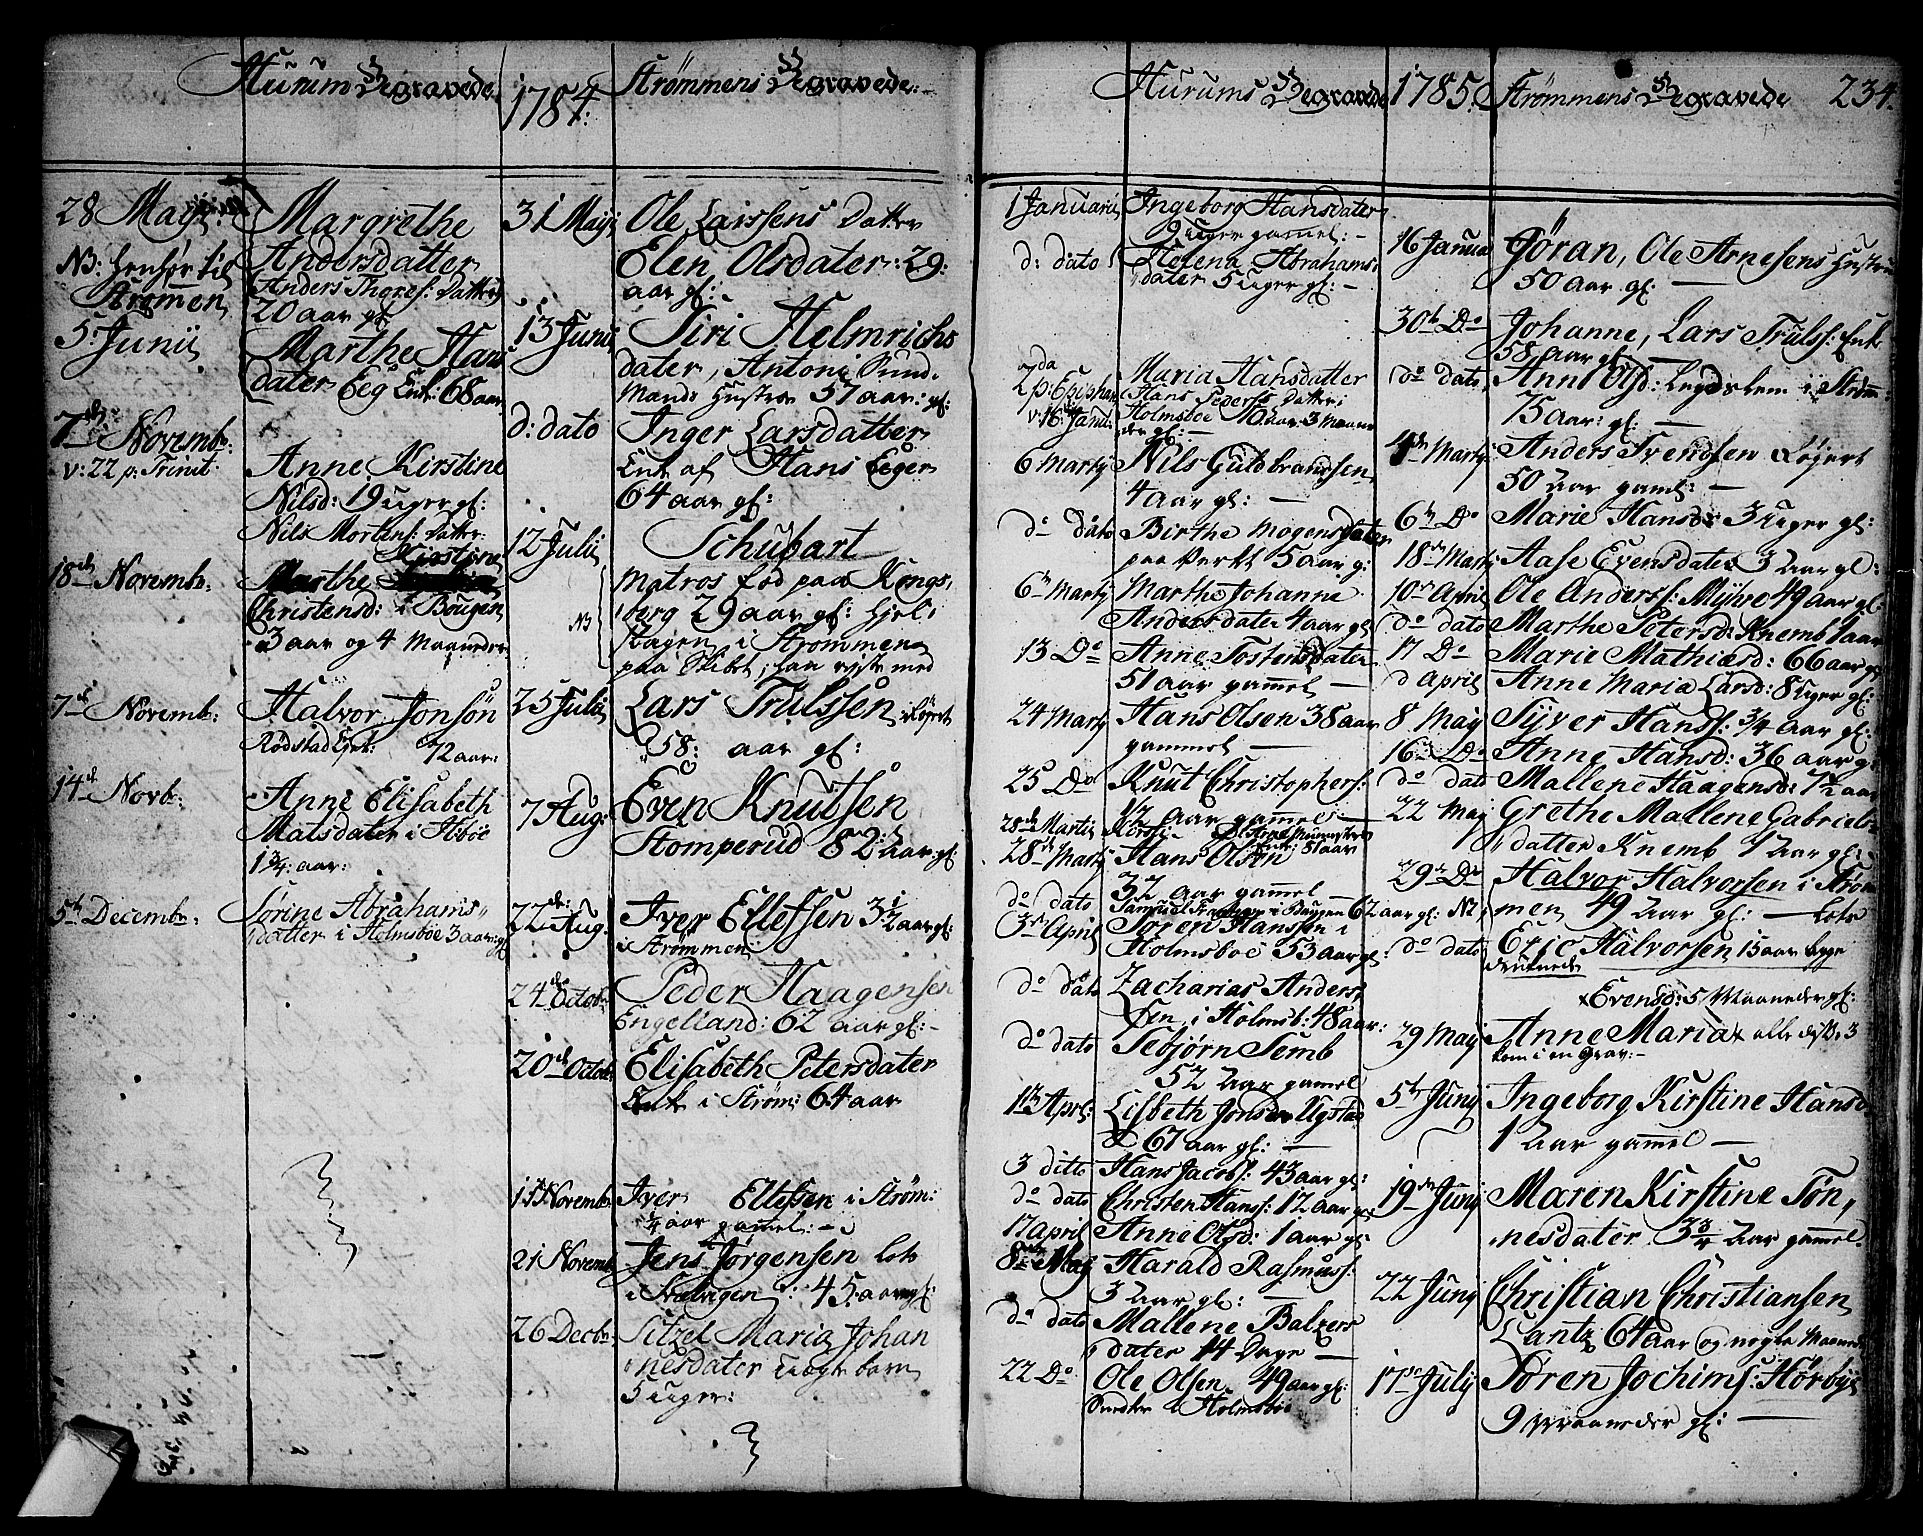 Hurum Begravede
1784.
Strømmens Begravede:
28 Maji
Margrethe
Andersdatter
Anders Thores: Datter
20 aar gl
NB: henhør til
Strømen
5 Junii
Marthe Hans
dater Eeg Enk: 68 aar
7de Novemb:
v: 22 p: Trinit:
Anne Kirstine
Nilsd: 19 uger gl:
Nils Mortens: Datter
18de Novemb:
Kirstine
Christensd: i Bougen
3 aar og 4 Maaneder
7de Novemb:
Halvor Jonsøn
Rødstad 72 aar:
14de Novb:
Anne Elisabeth
Matsdater i
1 3/4 aar:
5te Decemb:
Sørine Abrahams
datter i Holmsboe 3 aar gl
31 Maji
Ole Larssens Datter
Elen Olsdater: 29:
aar gl:
13 Junii
Siri Helmrichs
dater, Antoni Sund
Mands Hustroe 57 aar: gl:
d: dato
Inger Larsdatter
Enk af Hans Eeger
64 aar gl:
12 Julii
Schubart
Matros fød paa Kongs
berg 29 aar gl:
NB
i Strømmen
paa Skibet,
25 Julii
Lars Trulssen
58: aar gl:
7 Aug:
Even Knutsen
Stomperud 82: Aar gl:
22de Aug:
Iver Ellefsen 3 1/2 aar gl:
i Strømmen:
24de Octob:
Peder Haagensen
Engelland: 62 aar gl: -
20de Octob:
Elisabeth Petersdater
Enk i Strøm: 64 aar
15 Novemb:
Iver Ellefsen i Strøm:
3/4 aar gamel: -
21 Novemb
Jens Jørgensen Lots
i Sætvigen: 45 aar gl:
26 Decbr
Sitzel Maria Johan
nesdater uægte barn
5 uger:
Hurums Begravede
1785.
Strømmens Begravede
234.
1 Januarii
Ingeborg Hansdater
9 uger gamel: -
d: dato
Helena Abrahams
dater 5 uger gl: -
2da p: Epiphan:
v: 16 Janu:
Maria Hansdatter
Hans Peders: Datter i
Holmsboe 10 aar 3 maane
der gl: -
6 Martij
Nils Guldbrandsen
4 aar gl: -
do dato
Birthe Mogensdater
paa Verkt 5 aar g:
6te Martij
Marthe Johanne
Andersdater 4 aar gl
13 Do
Anne Tostensdater
51 aar gamel -
24 Martij
Hans Olsen 38 aar
gammel -
25 Do
Knut Christophers:
1/2 aar gamel: -
28de Martii
81 aar
28de Martij
Hans Olsen
32 aar gamel
do dato
Samuel i Bougen 62 aar gl: NB
3die April
Søren Hanssen i
Holmsboe 53 aar gl:
do dato
Zacharias Anders
sen i Holmsb: 48 aar:
do dato
Tebjørn Semb
52 Aar gamel
Aprl:
Lisbeth Jonsdr Ugstad
67 aar gl: -
3 ditto
Hans Jacobs: 43 aar gl:
do dato
Christen Hanss: 12 aar gl
17 april
Anne Olsd: 1 aar gl:
8de Maij
Harald Rasmuss:
3 Aar gl: -
do dato
Mallene Balzers
dater 14 Dage -
22 Do
Ole Olsen 49 aar gl:
i Holmsboe
16 Janua
Jøran, Ole Arnesens Hustru
50 Aar gl: -
30te Do
Johanne, Lars Truls: Enk
58 aar gl: -
do dato
Anne Olsd: Legdslem i Strøm
75 aar: gl: -
4de Martij
Anders Trendsen
50 Aar gaml: -
6te Do
Marie Hansdr 3 uger gl:
18de Martij
Aase Evensdater 3 Aar gl:
10de April
Ole Anderss: Myhre 49 aar gl:
do dato
Marthe Petersd: Knemb 1 aar
17 Do
Marie Mathiasd: 66 aar gl
d April
Anne Maria Larsd: 8 uger gl:
8 Maij
Syver Hanss: 3/4 aar gl:
16 Do
Anne Hansd: 36 aar gl
do dato
Mallene Haagensd: 7 1/2 aar
22 Maj
Grethe Mallene Gabriels
datter Knemb 1 Aar gl:
29de Do
Halvor Halvorsen i Strøm
men 49 Aar gl: - Lots
do dato
Eric Halvorsen 15 aar begge
druknede
x Evensd: 5 Maaneder gl:
29 Maij
Anne Maria x alle disse 3
kom i en Grav: -
5te Junij
Ingeborg Kirstine Hansd
1 Aar gamel -
19de Junij
Maren Kirstine Tøn,
nesdater 3 3/4 Aar gamel.
22 Junij
Christian Christiansen
Lantz 64 aar og nogle Maaneder
17de Julij
Søren Jochims: Hørbye
9 Maaneder gl: -